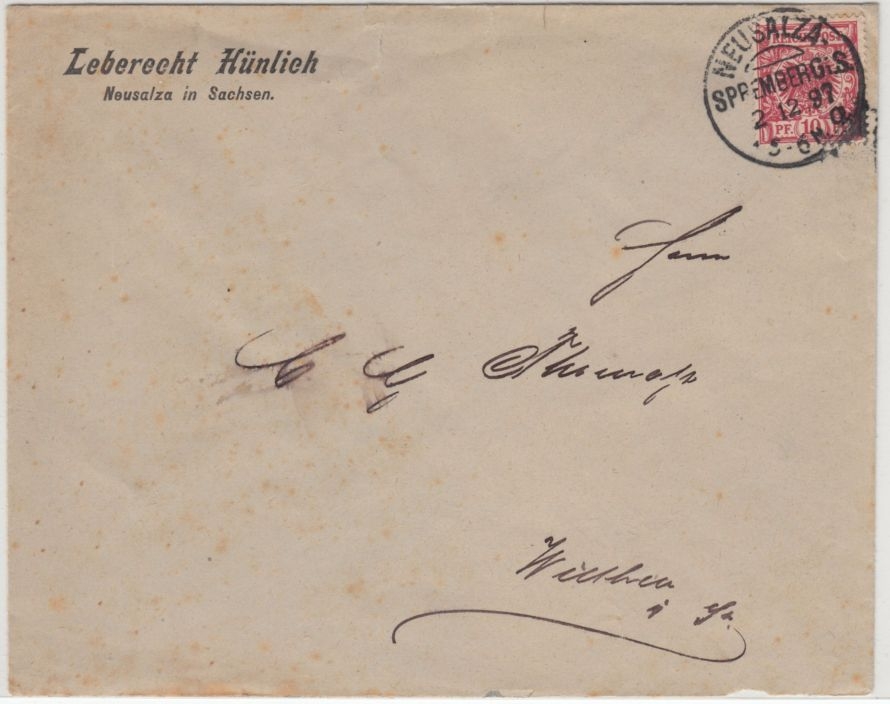 Leberecht Hünlich
Neusalza in Sachsen.
NEUSALZA
SPREMBERG i. S.
2 12 97
5-6 N.
REICHSPOST
PF. 10 PF.
Herrn
C G Thomas
Wilthen
i Sa.